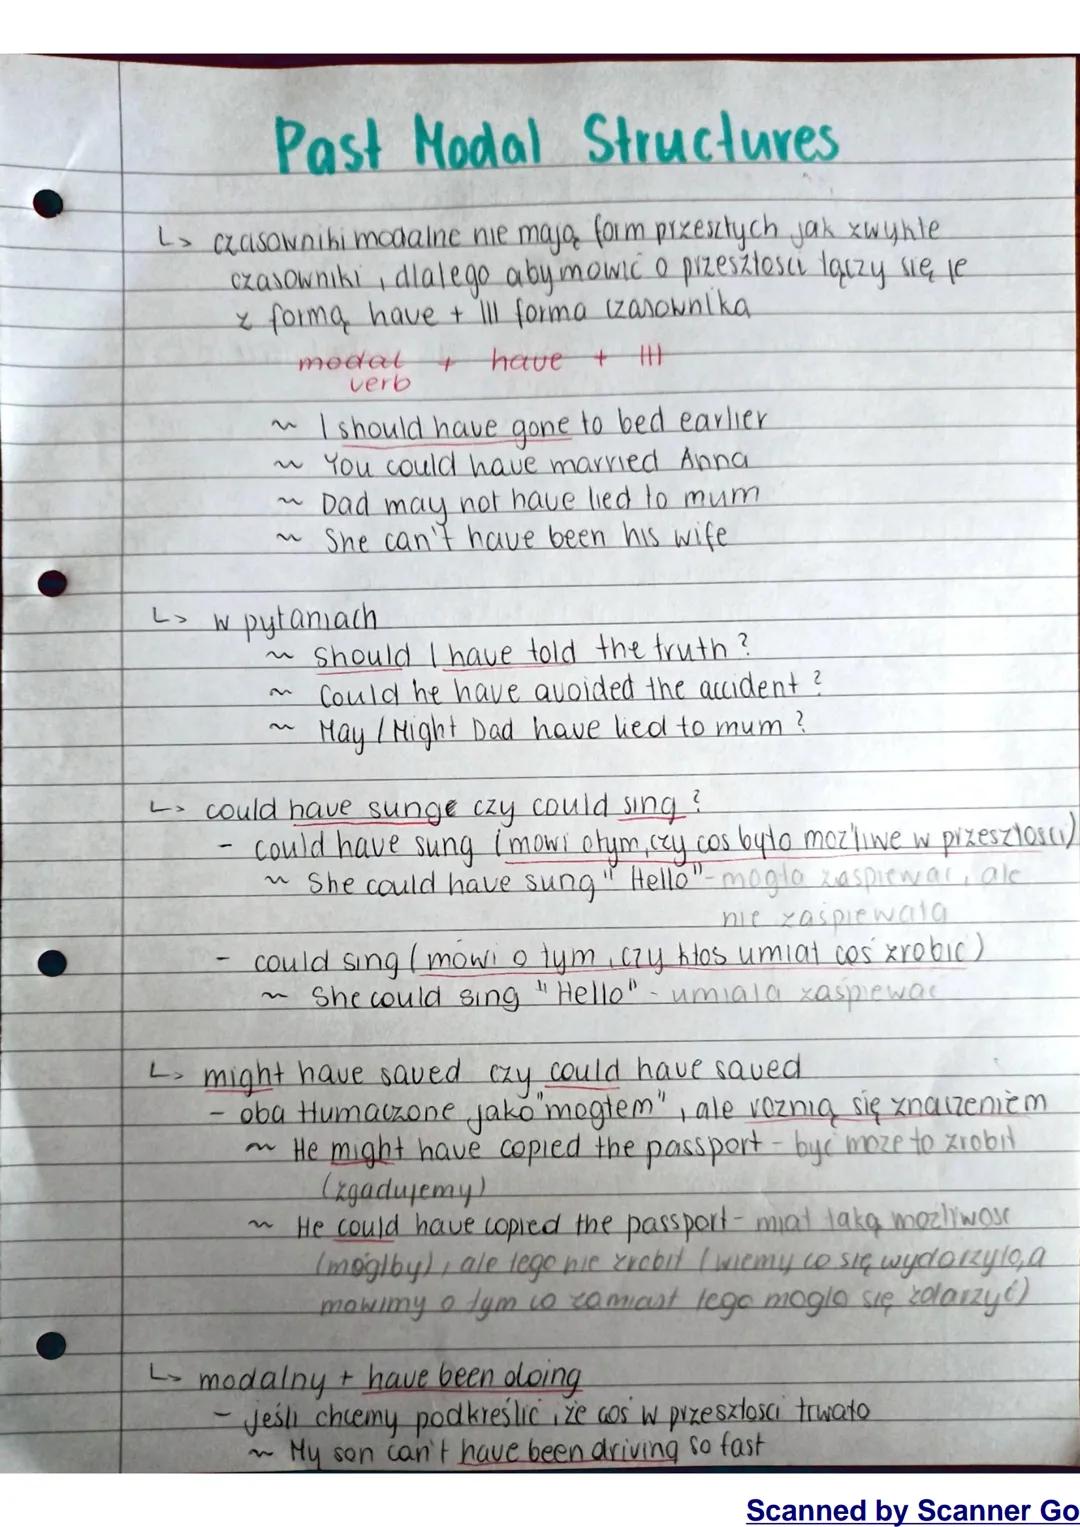 Past Modal Structures
↳ czasowniki modalne nie mają form przeszłych jak zwykłe
czasowniki, dlatego aby mówić o przeszłości łączy się je
z formą have + III forma czasownika
modal + have + III
verb
~ I should have gone to bed earlier
~ You could have married Anna
~ Dad may not have lied to mum
~ She can't have been his wife
↳ w pytaniach
~ Should I have told the truth?
~ Could he have avoided the accident?
~ May / Might Dad have lied to mum?
↳ could have sunge czy could sing?
- could have sung (mówi otym, czy coś było możliwe w przeszłości)
~ She could have sung "Hello" - mogła zaśpiewać, ale
nie zaśpiewała
- could sing (mówi o tym, czy ktoś umiał coś zrobić)
~ She could sing "Hello" - umiała zaśpiewać
↳ might have saved czy could have saved
- oba tłumaczone jako "mogłem", ale rożnią się znaczeniem
~ He might have copied the passport - być może to zrobił
(zgadujemy)
~ He could have copied the passport - miał taką możliwość
(mógłby), ale tego nie zrobił (wiemy co się wydarzyło, a
mówimy o tym co zamiast tego mogło się zdarzyć)
↳ modalny + have been doing
- jeśli chcemy podkreślić, że coś w przeszłości trwało
~ My son can't have been driving so fast
Scanned by Scanner Go